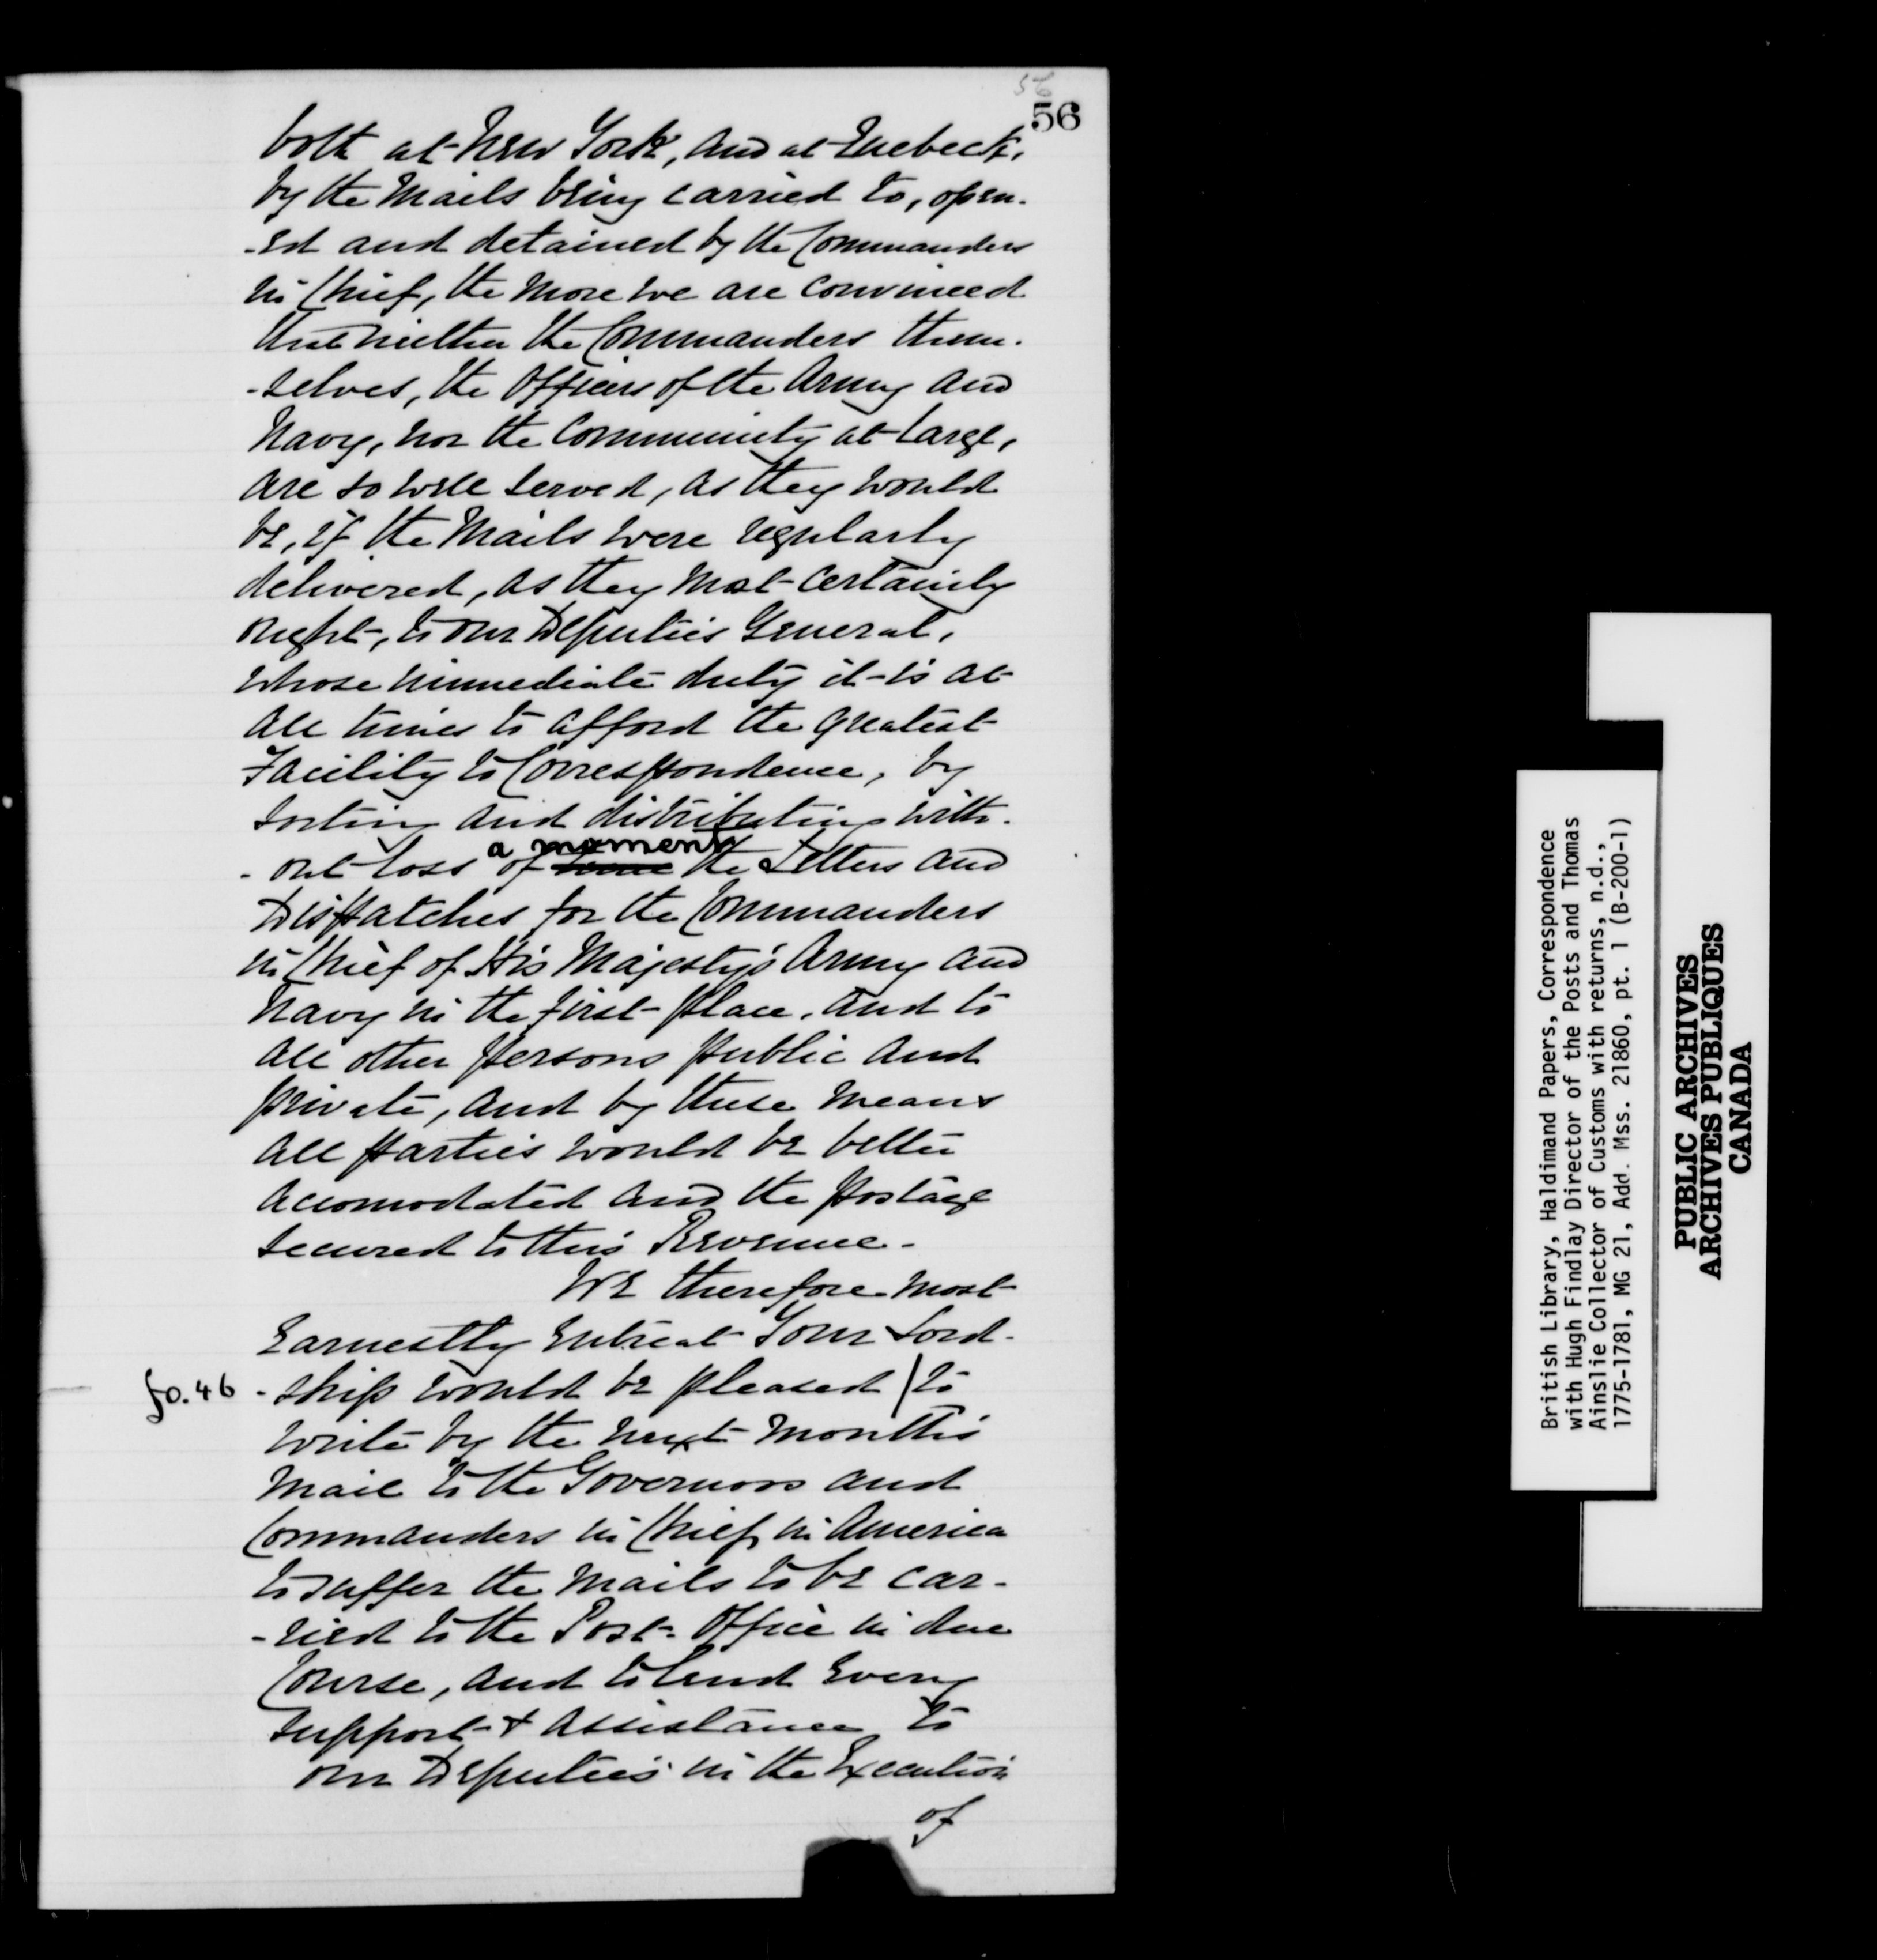 56
56
both at New York, and at Quebeck,
by the Mails being carried to, open-
-ed and detained by the Commanders
in Chief, the more we are convinced
that neither the Commanders them-
-selves, the Officers of the Army and
Navy, nor the Community at large,
are so well served, as they would
be, if the Mails were regularly
delivered, as they most certainly
ought, to our Deputies General,
whose immediate duty it is at
all times to afford the greatest
Facility to Correspondence, by
sorting and distributing with-
a moment
-out loss of time the Letters and
Dispatches for the Commanders
in Chief of His Majesty's Army and
Navy in the first place, and to
all other persons public and
private, and by these means
all parties would be better
accomodated and the postage
secured to this Revenue.
We therefore most
Earnestly Entreat Your Lord-
fo. 46 -ship would be pleased / to
write by the next month's
Mail to the Governors and
Commanders in Chief in America
to suffer the Mails to be car-
-ried to the Post-Office in due
Course, and to lend Every
support & assistance to
our Deputies in the Execution
of
British Library, Haldimand Papers, Correspondence
with Hugh Findlay Director of the Posts and Thomas
Ainslie Collector of Customs with returns, n.d.,
1775-1781, MG 21, Add. Mss. 21860, pt. 1 (B-200-1)
PUBLIC ARCHIVES
ARCHIVES PUBLIQUES
CANADA